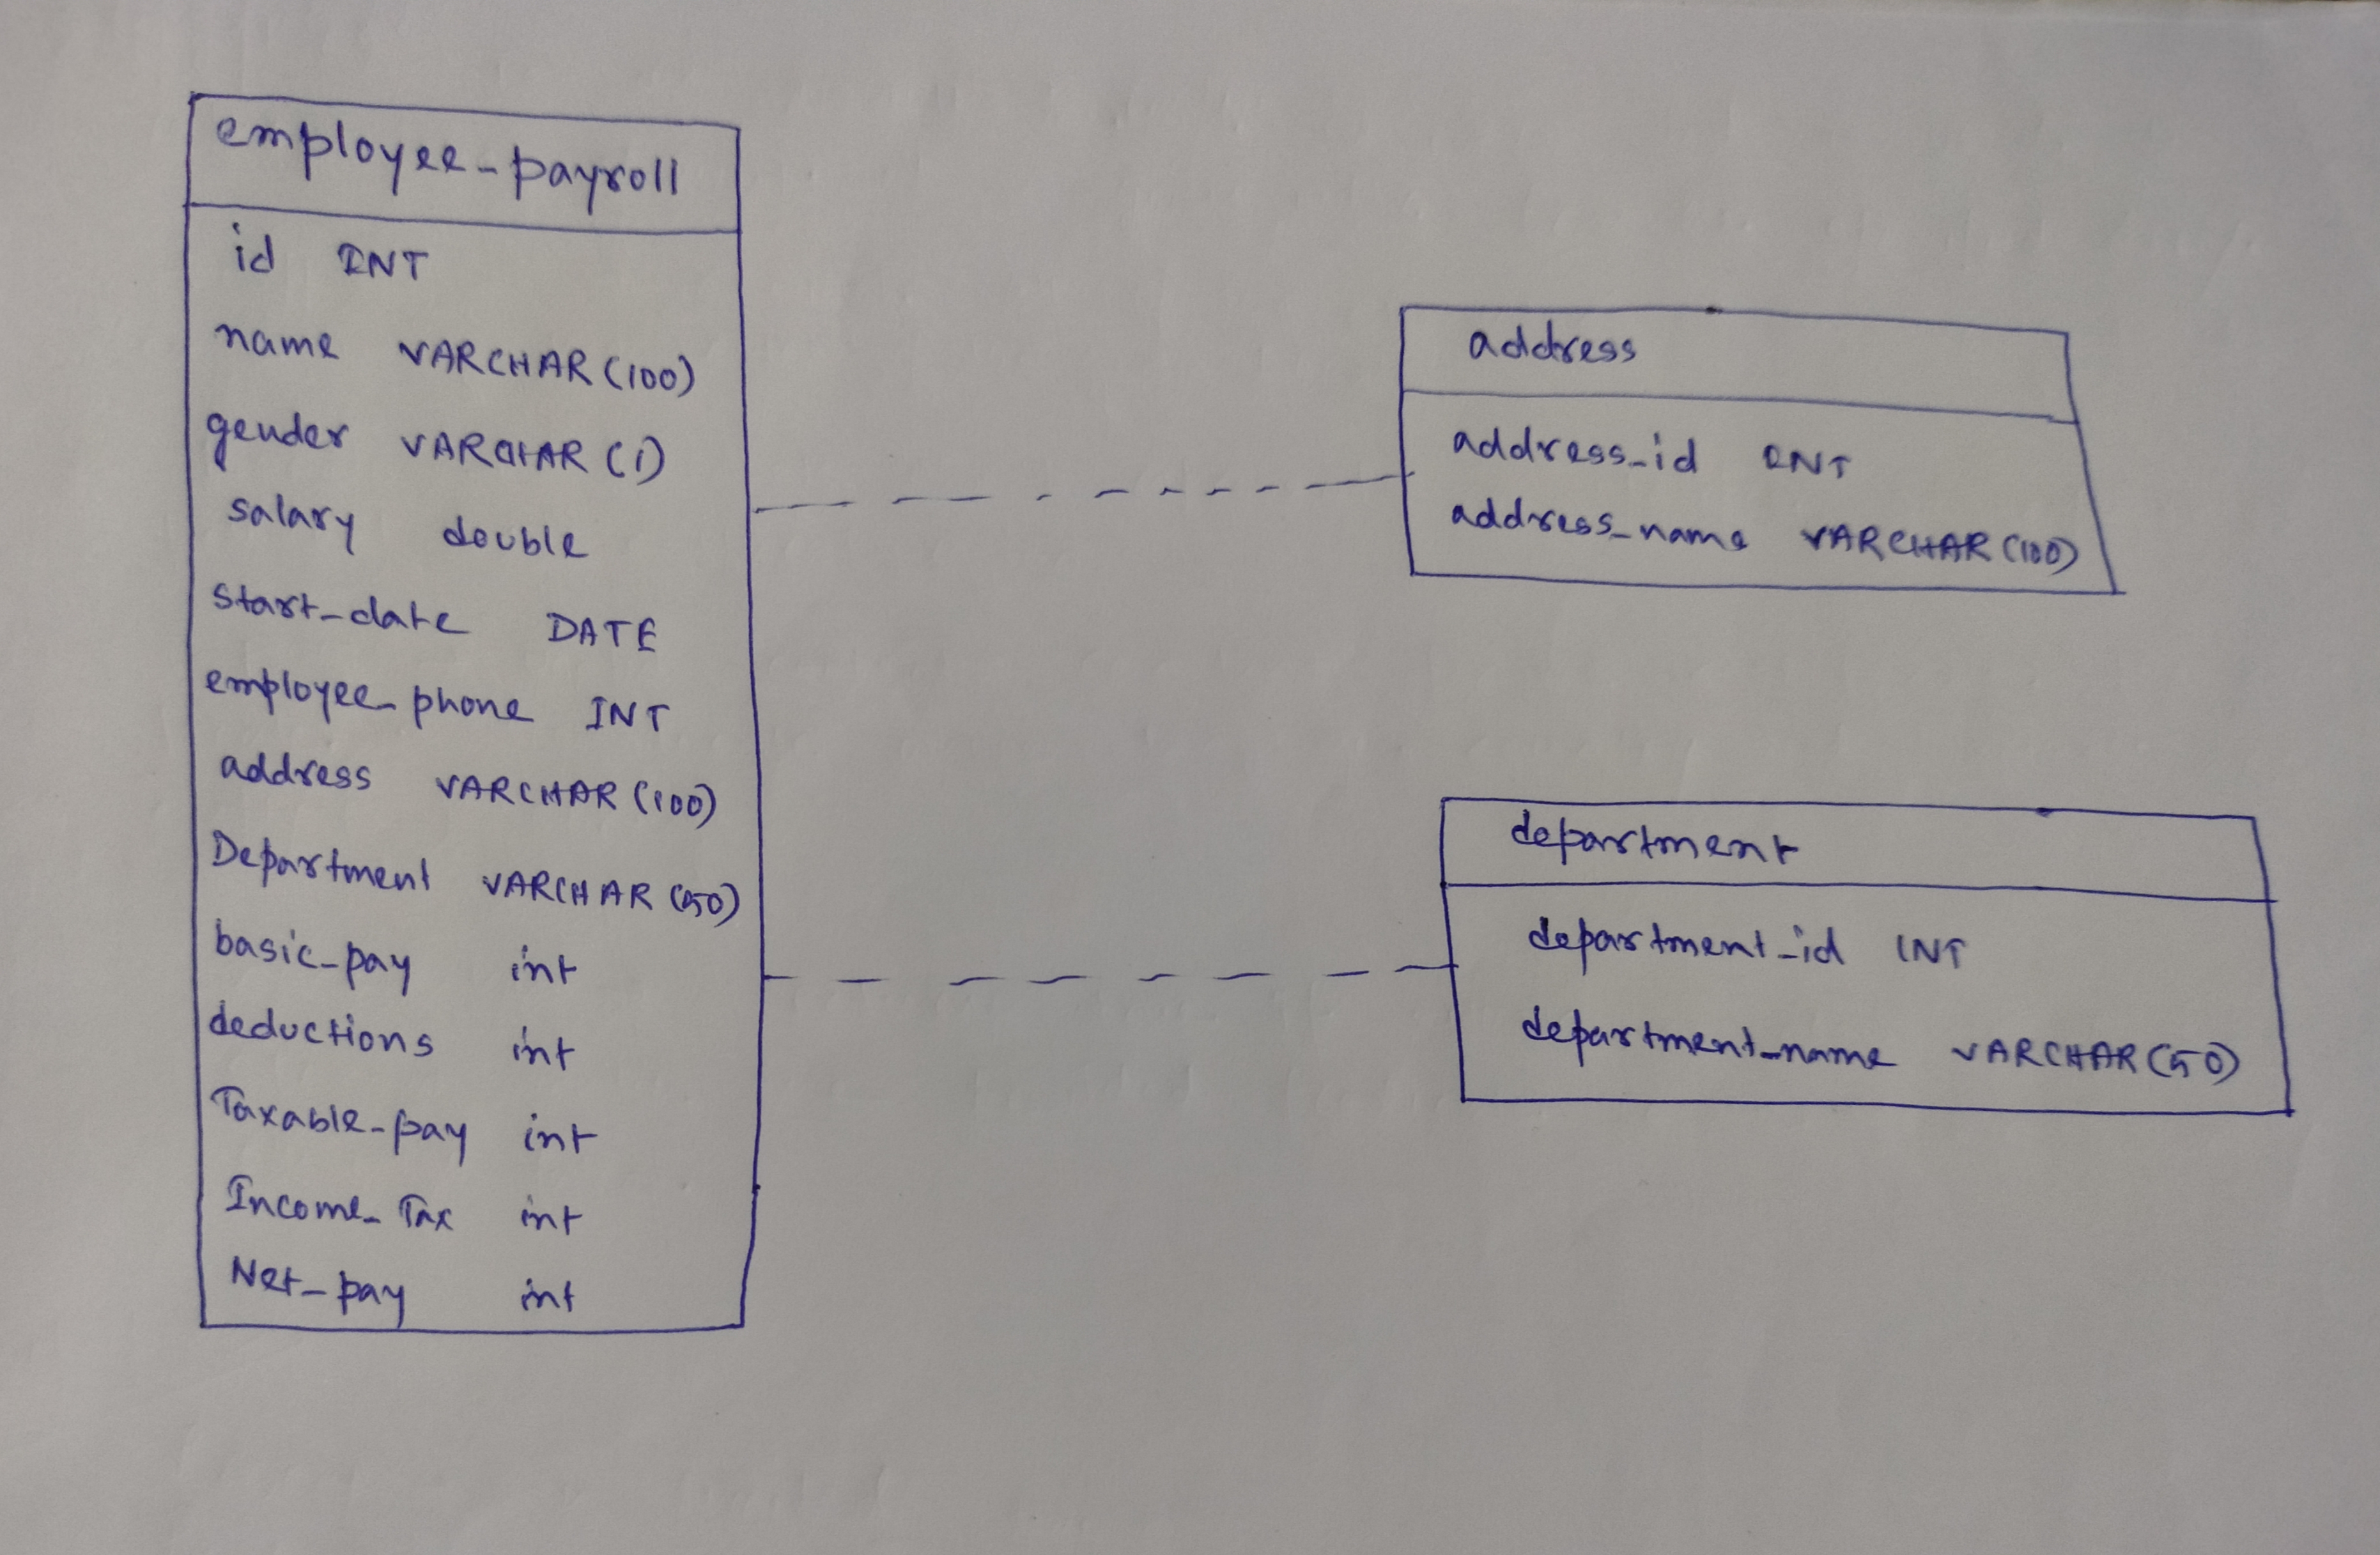 employee_payroll
id INT
name VARCHAR (100)
gender VARCHAR (1)
salary double
start_date DATE
employee_phone INT
address VARCHAR (100)
Department VARCHAR (50)
basic_pay int
deductions int
Taxable_pay int
Income_Tax int
Net_pay int
address
address_id INT
address_name VARCHAR (100)
department
department_id INT
department_name VARCHAR (50)